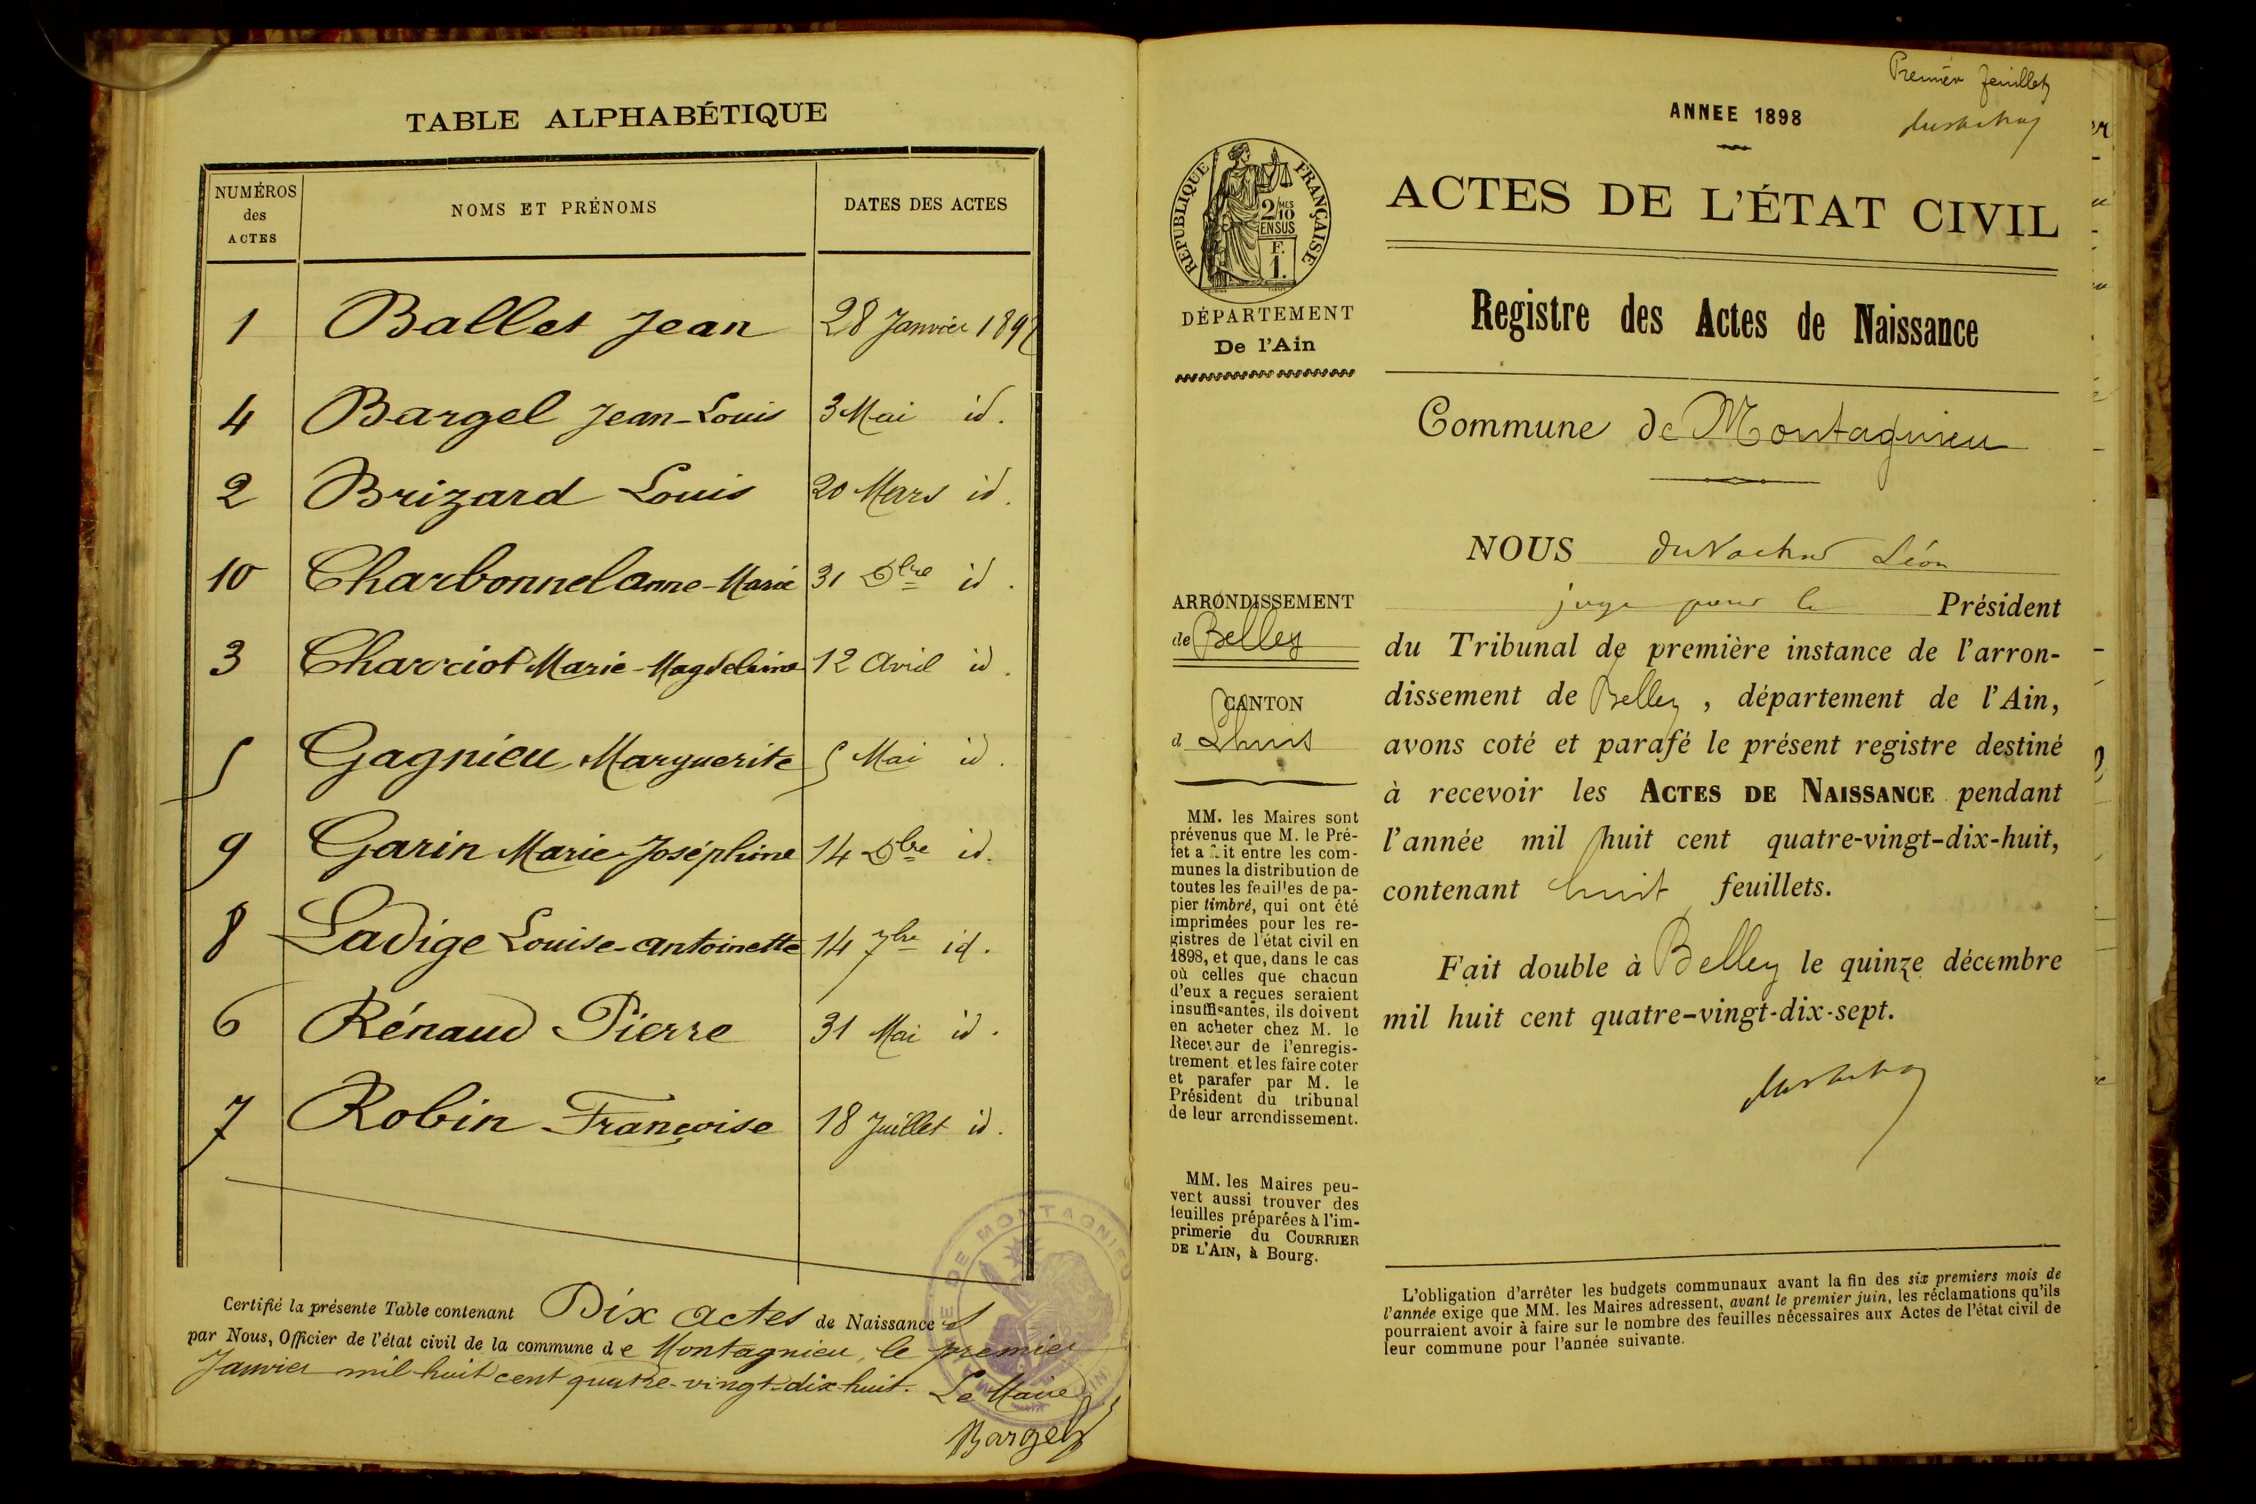 TABLE ALPHABÉTIQUE
NUMÉROS des ACTES | NOMS ET PRÉNOMS | DATES DES ACTES
1 Ballet Jean 28 Janvier 1897
4 Bargel Jean-Louis 3 Mai id.
2 Brizard Louis 20 Mars id.
10 Charbonnel Anne-Marie 31 Dbre id.
3 Charviot Marie-Magdeleine 12 Avril id.
5 Gagnieu Marguerite 5 Mai id.
9 Garin Marie Joséphine 14 Dbre id.
8 Ladige Louise-Antoinette 14 7bre id.
6 Rénaud Pierre 31 Mai id.
7 Robin Françoise 18 Juillet id.
Certifié la présente Table contenant Dix actes de Naissances
par Nous, Officier de l'état civil de la commune de Montagnieu, le premier
Janvier mil huit cent quatre-vingt-dix-huit. Le Maire
Bargel
DE MONTAGNIEU
Premier feuillet
ANNEE 1898
RÉPUBLIQUE FRANÇAISE
2/10MES
EN SUS
F.
1.
DÉPARTEMENT
De l'Ain
ACTES DE L'ÉTAT CIVIL
Registre des Actes de Naissance
Commune de Montagnieu
ARRONDISSEMENT
de Belley
CANTON
d Lhuis
MM. les Maires sont
prévenus que M. le Pré-
fet a fait entre les com-
munes la distribution de
toutes les feuilles de pa-
pier timbré, qui ont été
imprimées pour les re-
gistres de l'état civil en
1898, et que, dans le cas
où celles que chacun
d'eux a reçues seraient
insuffisantes, ils doivent
en acheter chez M. le
Receveur de l'enregis-
trement et les faire coter
et parafer par M. le
Président du tribunal
de leur arrondissement.
MM. les Maires peu-
vent aussi trouver des
feuilles préparées à l'im-
primerie du COURRIER
DE L'AIN, à Bourg.
NOUS Léon
juge pour le Président
du Tribunal de première instance de l'arron-
dissement de Belley, département de l'Ain,
avons coté et parafé le présent registre destiné
à recevoir les ACTES DE NAISSANCE pendant
l'année mil huit cent quatre-vingt-dix-huit,
contenant huit feuillets.
Fait double à Belley le quinze décembre
mil huit cent quatre-vingt-dix-sept.
L'obligation d'arrêter les budgets communaux avant la fin des six premiers mois de
l'année exige que MM. les Maires adressent, avant le premier juin, les réclamations qu'ils
pourraient avoir à faire sur le nombre des feuilles nécessaires aux Actes de l'état civil de
leur commune pour l'année suivante.